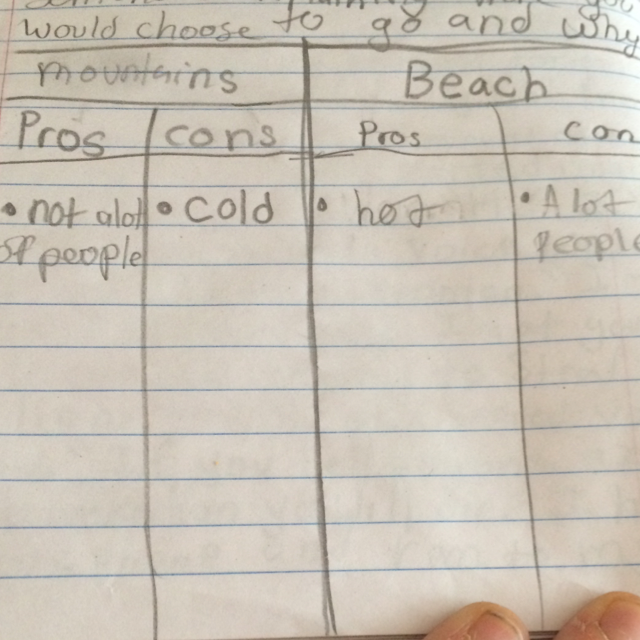 would choose to go and why
mountains Beach
Pros cons Pros con
• not alot • cold • hot • A lot
of people people